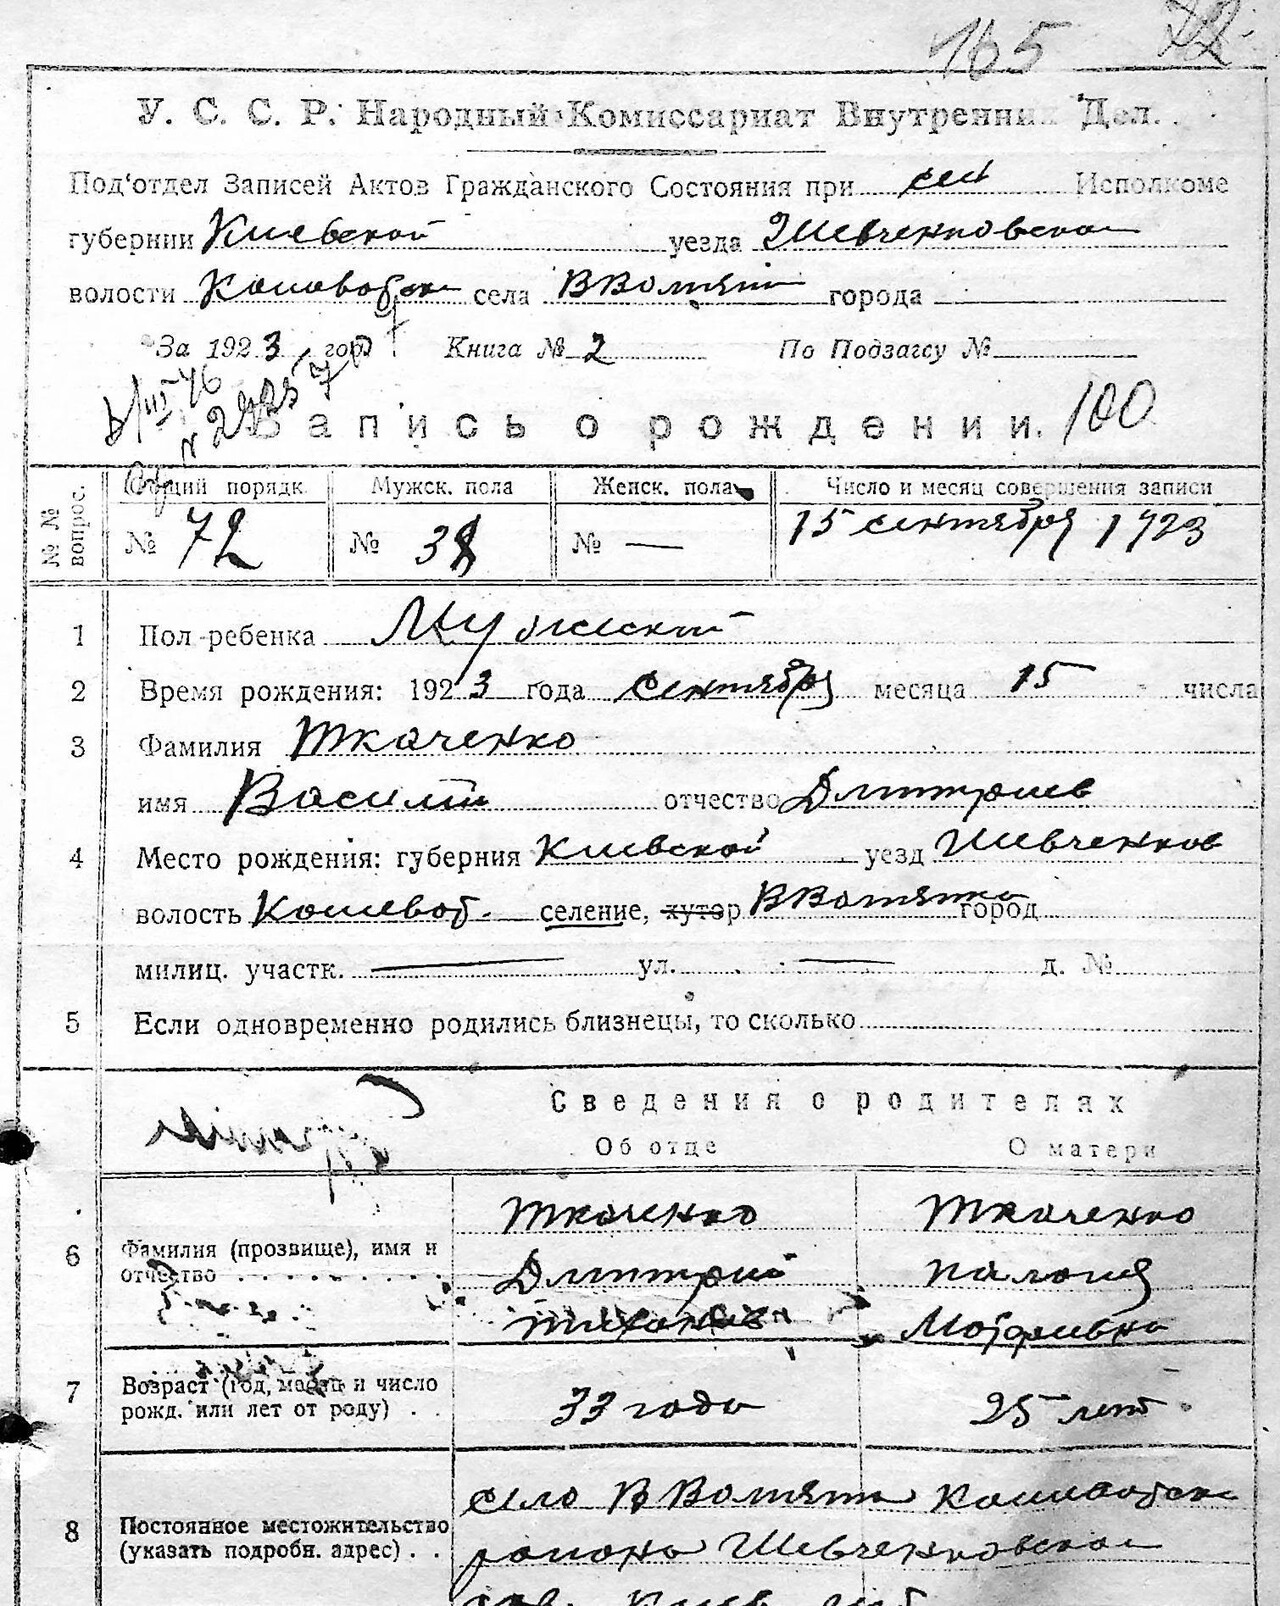 165 72.
У. С. С. Р. Народный Комиссариат Внутренних Дел.
Под'отдел Записей Актов Гражданского Состояния при сел Исполкоме
губернии Киевской уезда Шевченковской
волости села города
За 1923 год Книга № 2 По Подзагсу №
Запись о рождении. 100
№ № вопрос. Общий порядк. Мужск. пола Женск. пола Число и месяц совершения записи
№ 72 № 38 № — 15 сентября 1923
1 Пол ребенка Мужской
2 Время рождения: 1923 года сентября месяца 15 числа
3 Фамилия Ткаченко
имя Василий отчество Дмитриев
4 Место рождения: губерния Киевской уезд Шевченков
волость Кошеват. селение, хутор город
милиц. участк. — ул. — д. №
5 Если одновременно родились близнецы, то сколько
Сведения о родителях
Об отце О матери
6 Фамилия (прозвище), имя и Ткаченко Ткаченко
отчество Дмитрий
7 Возраст (год, месяц и число 33 года 25 лет
рожд. или лет от роду) . .
село
8 Постоянное местожительство
(указать подробн. адрес) . . района Шевченковской